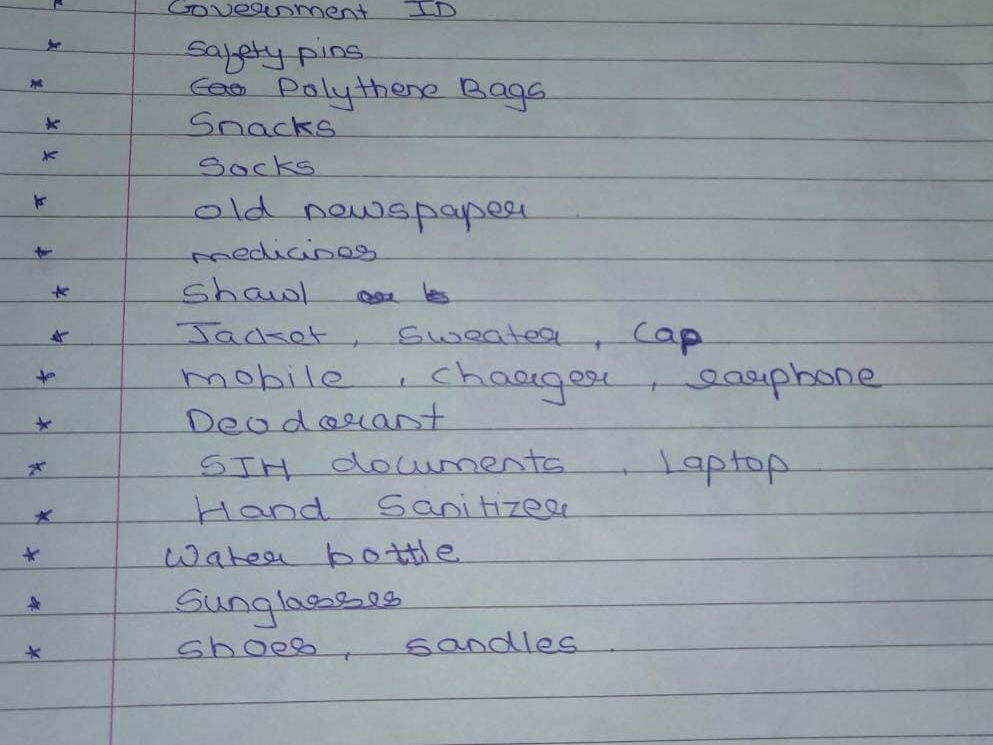 * Government ID
* Safety pins
* Polythene Bags
* Snacks
* Socks
* old newspaper
* medicines
* Shawl
* Jacket, Sweater, Cap
* mobile, charger, earphone
* Deodorant
* SIH documents, Laptop
* Hand Sanitizer
* Water bottle
* Sunglasses
* Shoes, sandles.